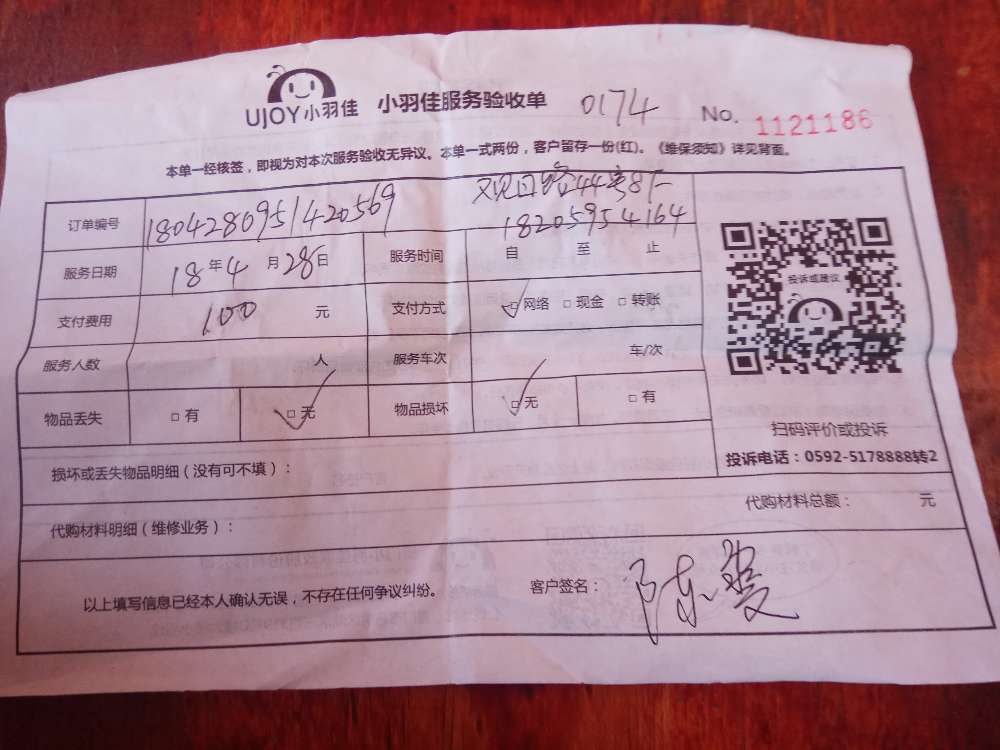 UJOY小羽佳 小羽佳服务验收单 0174 No. 1121186
本单一经核签，即视为对本次服务验收无异议。本单一式两份，客户留存一份(红)。《维保须知》详见背面。
订单编号 1804280951420569 观日路44号8F
18205954164
服务日期 18年4月28日 服务时间 自 至 止
支付费用 100 元 支付方式 ☑网络 □现金 □转账
服务人数 人 服务车次 车/次
物品丢失 □有 ☑无 物品损坏 ☑无 □有
投诉或建议
扫码评价或投诉
投诉电话：0592-5178888转2
损坏或丢失物品明细（没有可不填）：
代购材料明细（维修业务）： 代购材料总额： 元
以上填写信息已经本人确认无误，不存在任何争议纠纷。 客户签名： 陈